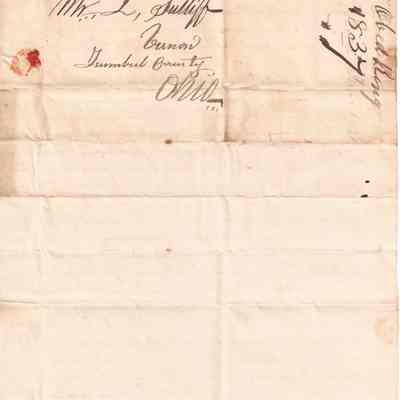 Mr. L, Sutliff
Vernon
Trumbul County
Ohio
Obed King
1837